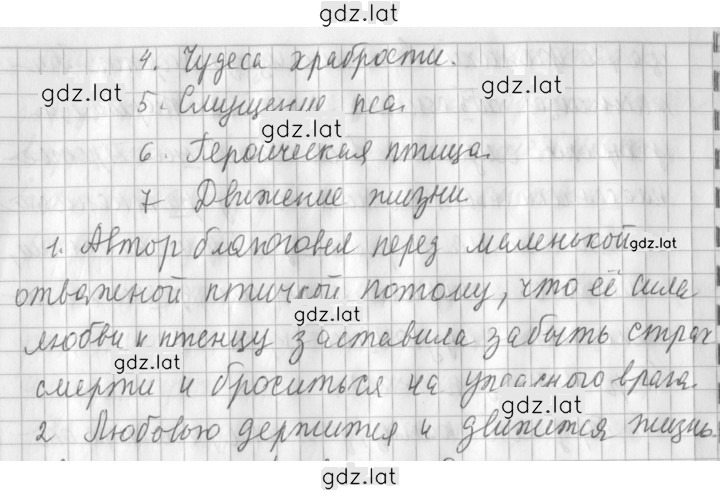 gdz.lat
4. Чудеса храбрости.
gdz.lat gdz.lat
5. Смущению пса.
gdz.lat
6. Героическая птица.
7 Движение жизни
1. Автор благоговел перед маленькой gdz.lat
отважной птичкой потому, что её сила
gdz.lat
любви к птенцу заставила забыть страх
gdz.lat
смерти и броситься на ужасного врага.
gdz.lat
2 Любовью держится и движется жизнь.
gdz.lat